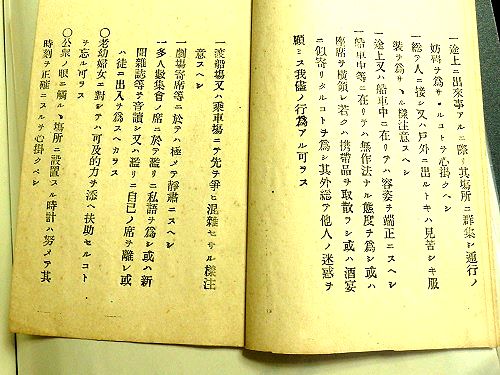 一途上ニ出來事アルニ際シ其場所ニ群集シ通行ノ
妨碍ヲ爲サヽルコトヲ心掛クヘシ
一總テ人ニ接シ又ハ戸外ニ出ルトキハ見苦シキ服
裝ヲ爲サヽル樣注意スヘシ
一途上又ハ船車中ニ在リテハ容姿ヲ端正ニスヘシ
一船車中等ニ在リテハ無作法ナル態度ヲ爲シ或ハ
座席ヲ横領シ若クハ携帶品ヲ取散ラシ或ハ酒宴
ニ似寄リタルコトヲ爲シ其外總テ他人ノ迷惑ヲ
顧ミス我儘ノ行爲アル可ラス
一渡船場又ハ乘車場ニテ先ヲ爭ヒ混雜セサル樣注
意スヘシ
一劇場寄席等ニ於テハ極メテ靜肅ニスヘシ
一多人數集會ノ席ニ於テ濫リニ私語ヲ爲シ或ハ新
聞雜誌等ヲ音讀シ又ハ濫リニ自己ノ席ヲ離レ或
ハ徒ニ出入ヲ爲スヘカラス
〇老幼婦女ニ對シテハ可及的力ヲ添ヘ扶助セルコト
ヲ忘ル可ラス
〇公衆ノ眼ニ觸ルヽ場所ニ設置スル時計ハ努メテ其
時刻ヲ正確ニスルヲ心掛クヘシ